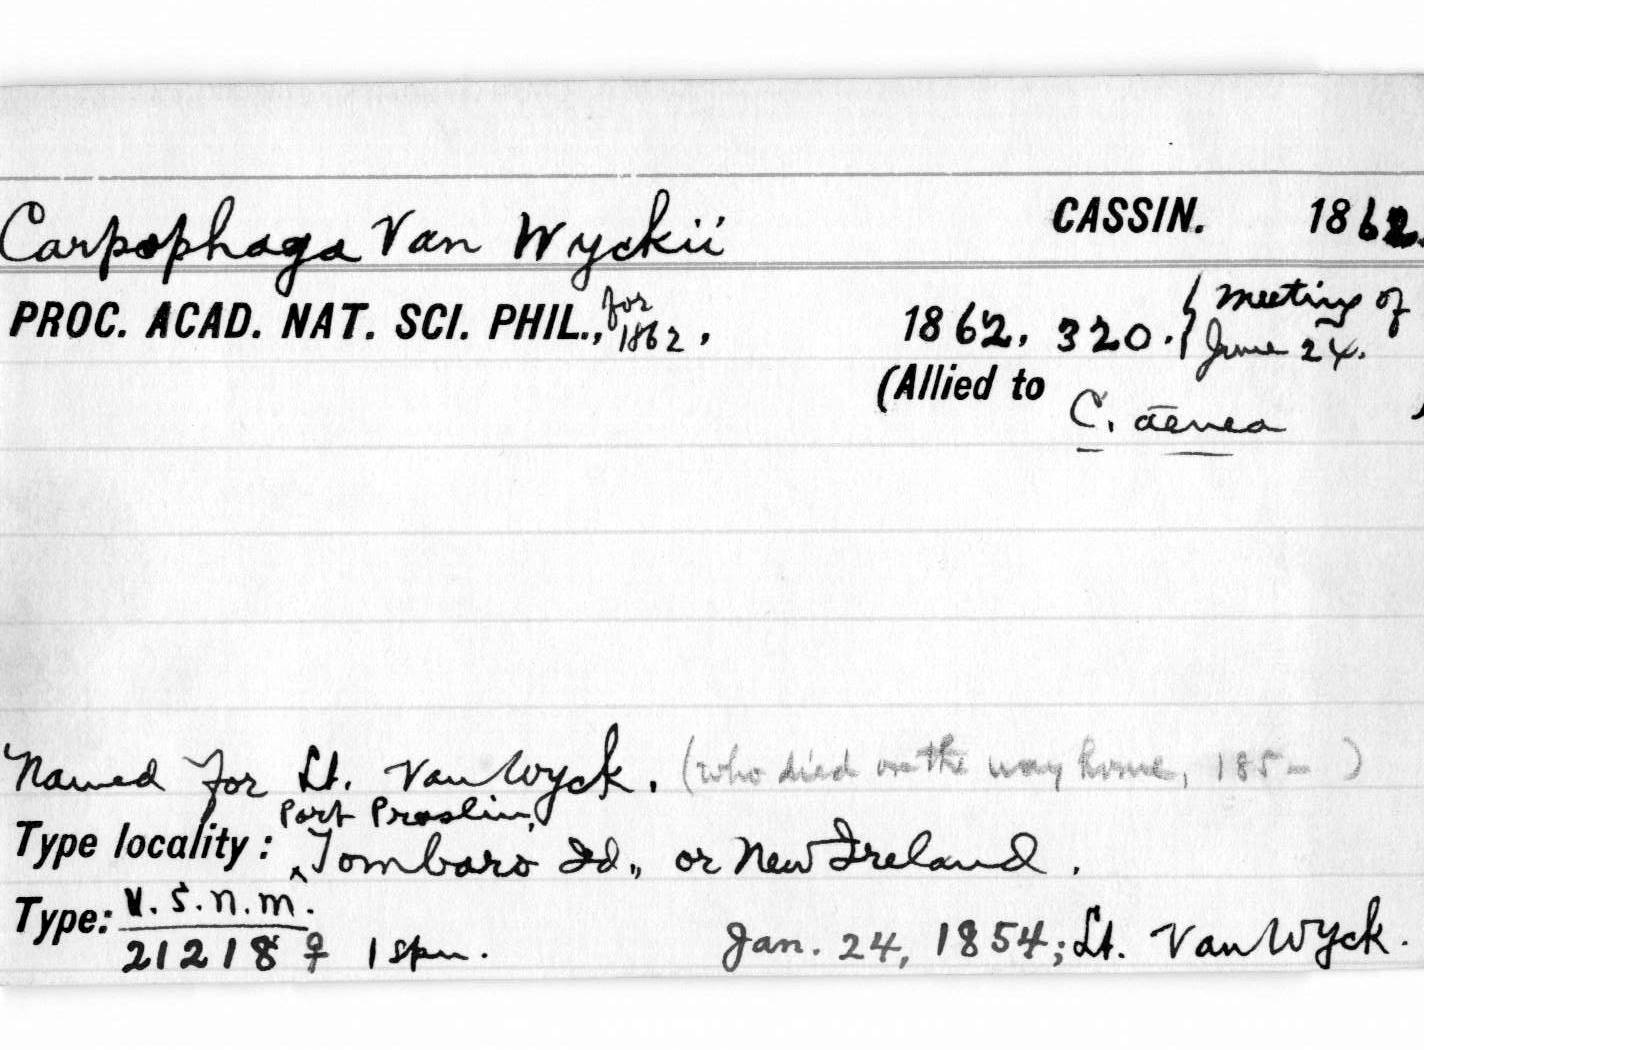 Carpophaga Van Wyckii CASSIN. 1862.
PROC. ACAD. NAT. SCI. PHIL., for 1862, 1862, 320. { Meeting of June 24.
(Allied to C. aenea )
Named for Lt. Van Wyck. (who died on the way home, 185- )
Port Praslin,
Type locality: ^Tombaro Id., or New Ireland.
Type: U.S.N.M.
21218 ♀ 1 spm. Jan. 24, 1854; Lt. Van Wyck.